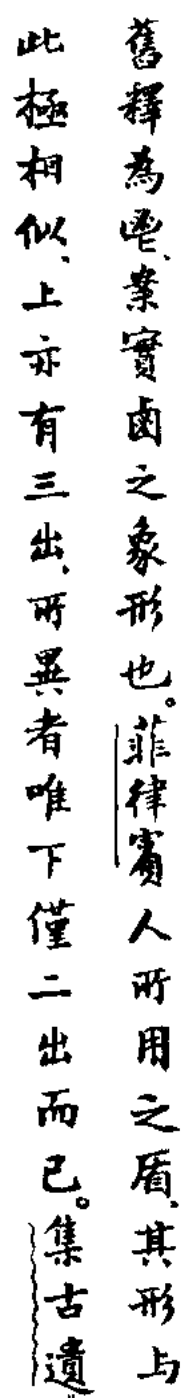 舊釋為鬯、案實鹵之象形也。菲律賓人所用之盾、其形与
此極相似、上亦有三出、所異者唯下僅二出而已。集古遺